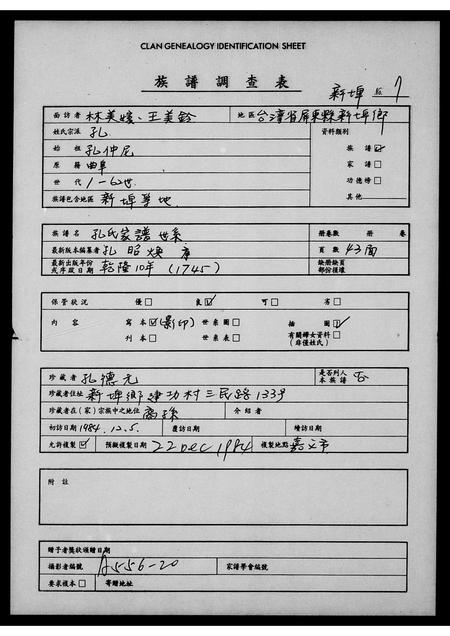 CLAN GENEALOGY IDENTIFICATION SHEET
族譜調查表
新埤 7
面訪者 林美媛、王美鈴 地區 台灣省屏東縣新埤鄉
姓氏宗派 孔 資料類別
始祖 孔仲尼 族譜☑
原籍 曲阜 家譜□
世代 1-62世 功德榜□
族譜包合地區 新埤等地 其他
族譜名 孔氏家譜世系 冊卷數 冊 卷
最新版本編纂者 孔昭煥 頁數 43面
最新出版年份或序跋日期 乾隆10年(1745) 缺冊缺頁部份損壞
保管狀況 優□ 良☑ 可□ 劣□
內容 寫本☑(影印) 世系圖□ 插圖☑
刊本□ 世系表□ 有關婦女資料□(非僅姓氏)
珍藏者 孔德元 是否列入本族譜 否
珍藏者住址 新埤鄉建功村三民路133号
珍藏者在(家)宗族中之地位 裔孫 介紹者
初訪日期 1984.12.5. 覆訪日期 續訪日期
允許複製☑ 預擬複製日期 22 Dec 1984 複製地點 嘉义市
附註
贈予者獎狀頒贈日期
攝影者編號 A556-20 家譜學會編號
要求複本□ 寄贈地址